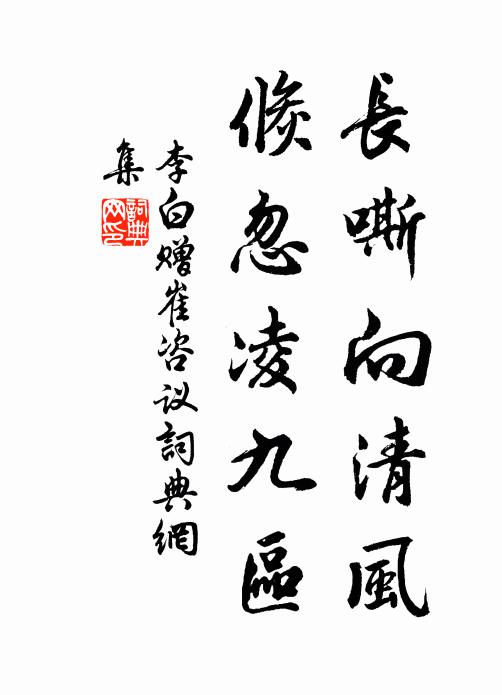 長嘶向清風
倐忽凌九區
李白贈崔咨议詞典網
集
詞典
网印